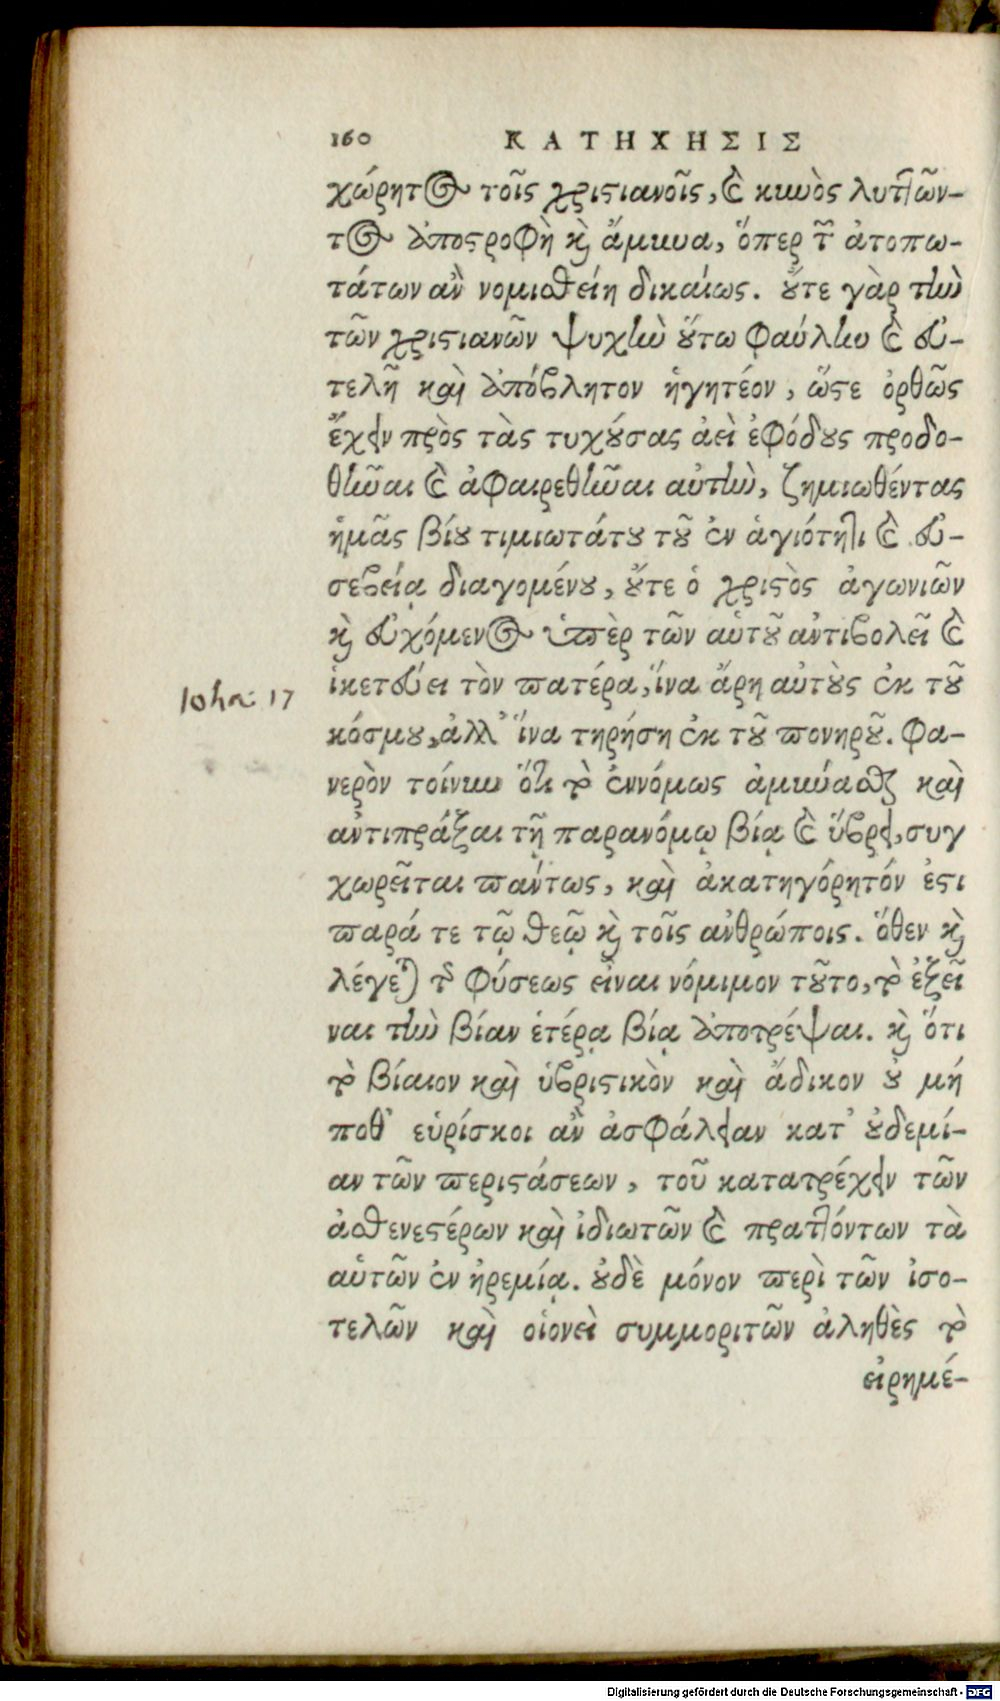 160 ΚΑΤΗΧΗΣΙΣ
χώρητος τοῖς χριστιανοῖς, καὶ κυνὸς λυττῶν-
τος ἀποστροφὴ καὶ ἄμυνα, ὅπερ τῶν ἀτοπω-
τάτων ἂν νομισθείη δικαίως. οὔτε γὰρ τὴν
τῶν χριστιανῶν ψυχὴν οὕτω φαύλην καὶ εὐ-
τελῆ καὶ ἀπόβλητον ἡγητέον, ὥστε ὀρθῶς
ἔχειν πρὸς τὰς τυχούσας ἀεὶ ἐφόδους προδο-
θῆναι καὶ ἀφαιρεθῆναι αὐτὴν, ζημιωθέντας
ἡμᾶς βίου τιμιωτάτου τοῦ ἐν ἁγιότητι καὶ εὐ-
σεβείᾳ διαγομένου, οὔτε ὁ χριστὸς ἀγωνιῶν
καὶ εὐχόμενος ὑπὲρ τῶν αὑτοῦ ἀντιβολεῖ καὶ
Iohn: 17
ἱκετεύει τὸν πατέρα, ἵνα ἄρῃ αὐτοὺς ἐκ τοῦ
κόσμου, ἀλλ' ἵνα τηρήσῃ ἐκ τοῦ πονηροῦ. Φα-
νερὸν τοίνυν ὅτι τὸ ἐννόμως ἀμύνασθαι καὶ
ἀντιπράξαι τῇ παρανόμῳ βίᾳ καὶ ὕβρει, συγ
χωρεῖται πάντως, καὶ ἀκατηγόρητόν ἐστι
παρά τε τῷ θεῷ καὶ τοῖς ἀνθρώποις. ὅθεν καὶ
λέγεται τῆς φύσεως εἶναι νόμιμον τοῦτο, τὸ ἐξεῖ
ναι τὴν βίαν ἑτέρᾳ βίᾳ ἀποτρέψαι. καὶ ὅτι
τὸ βίαιον καὶ ὑβριστικὸν καὶ ἄδικον οὐ μή
ποθ' εὑρίσκοι ἂν ἀσφάλειαν κατ' οὐδεμί-
αν τῶν περιστάσεων, τοῦ κατατρέχειν τῶν
ἀσθενεστέρων καὶ ἰδιωτῶν καὶ πραττόντων τὰ
αὑτῶν ἐν ἠρεμίᾳ. οὐδὲ μόνον περὶ τῶν ἰσο-
τελῶν καὶ οἱονεὶ συμμοριτῶν ἀληθὲς τὸ
εἰρημέ-
Digitalisierung gefördert durch die Deutsche Forschungsgemeinschaft - DFG